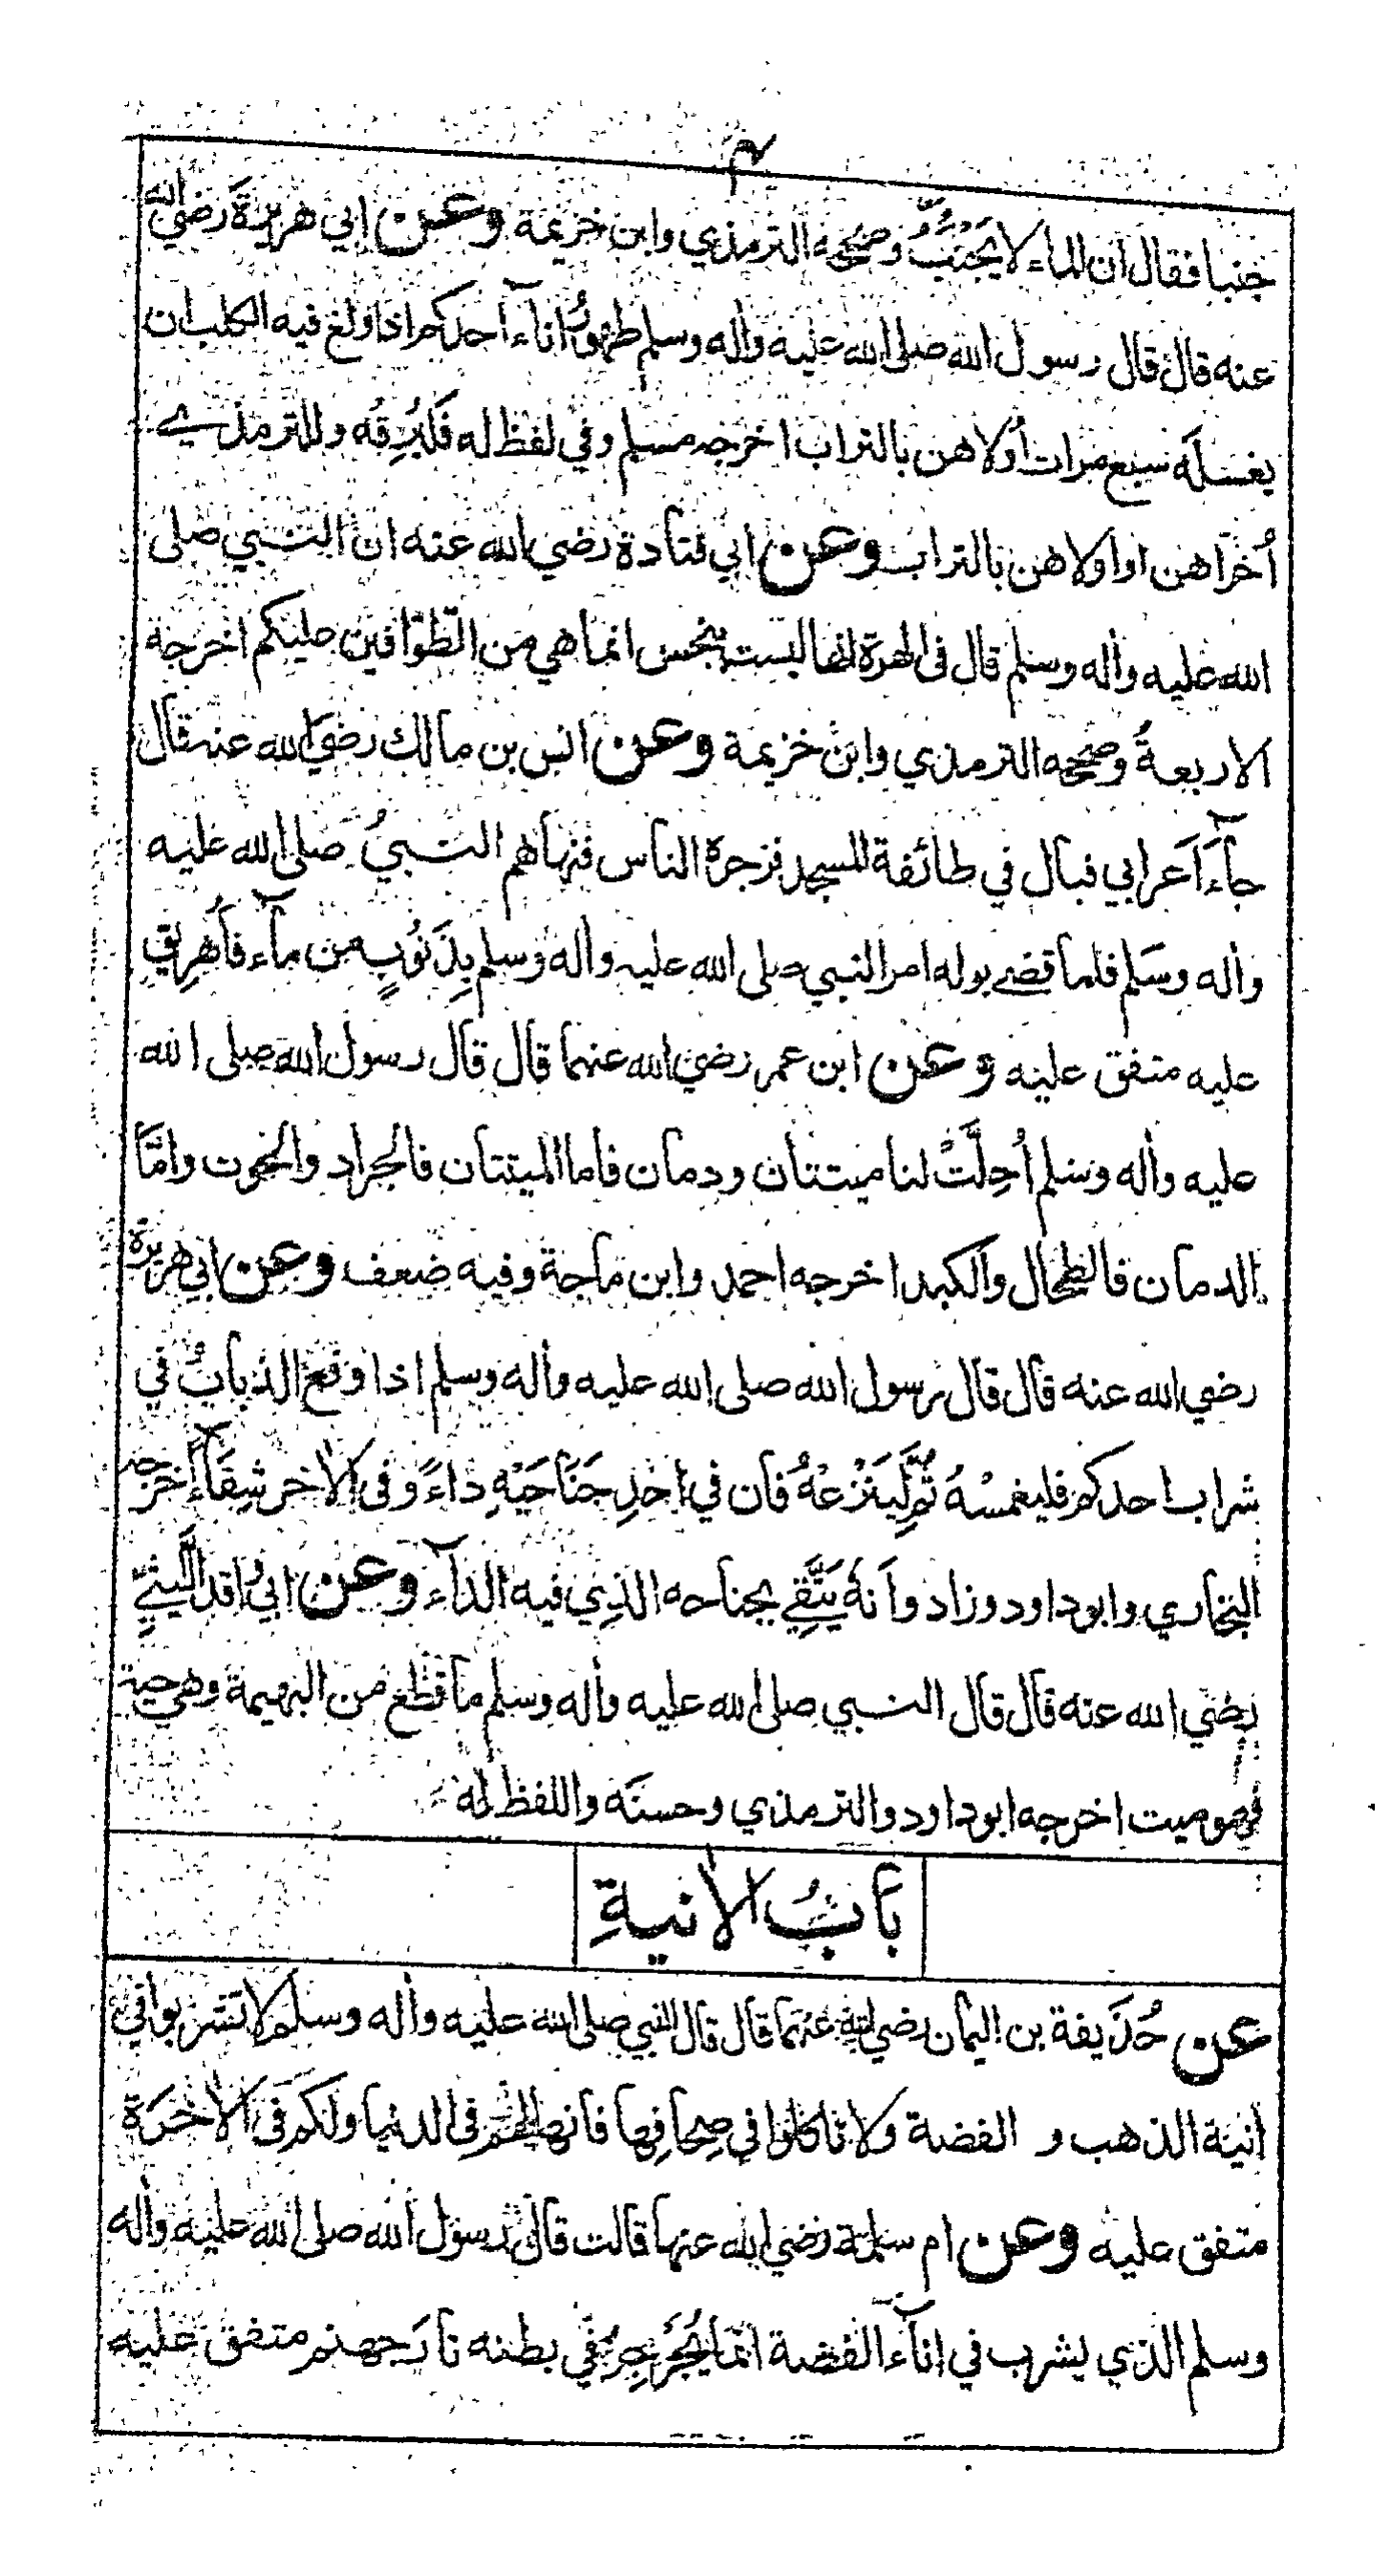 ٣
جنبا فقال ان الماء لا يَجْنُبُ وصححه الترمذي وابن خزيمة وعن ابي هريرة رضي الله
عنه قال قال رسول الله صلى الله عليه واٰله وسلم طهورُ اناء احدكم اذا ولغ فيه الكلب ان
يغسلَه سبع مرات اُولاهن بالتراب اخرجه مسلم وفي لفظ له فَليُرِقْه وللترمذي
اُخراهن او اولاهن بالتراب وعن ابي قتادة رضي الله عنه ان النبي صلى
الله عليه واٰله وسلم قال في الهرة انها ليست بنجس انما هي من الطَّوّافين عليكم اخرجه
الاربعةُ وصححه الترمذي وابن خزيمة وعن انس بن مالك رضي الله عنه قال
جآءَ اَعرابي فبال في طائفة المسجد فزجره الناس فنهاهم النبيُ صلى الله عليه
واٰله وسَلم فلما قضى بوله امر النبي صلى الله عليه واٰله وسلم بِذَنُوبٍ من مآء فاُهرِيق
عليه متفق عليه وعن ابن عمر رضي الله عنهما قال قال رسول الله صلى الله
عليه واٰله وسلم اُحِلَّتْ لنا ميتتان ودمان فاما الميتتان فالجراد والحوت وامَّا
الدمان فالطحال والكبد اخرجه احمد وابن ماجة وفيه ضعف وعن ابي هريرة
رضي الله عنه قال قال رسول الله صلى الله عليه واٰله وسلم اذا وقع الذبابُ في
شراب احدكم فليغمسْهُ ثُمَّ لِيَنْزعْهُ فان في احدِ جَنَاحَيْهِ دَاءً وفي الاٰخر شِفَآءً اخرجه
البخاري وابوداود وزاد وَاَنهُ يَتَّقِي بجناحه الذِي فيه الدآء وعن ابي واقد اللَّيثيِّ
رضي الله عنه قال قال النبي صلى الله عليه واٰله وسلم ما قطع من البهيمة وهي حية
فهو ميت اخرجه ابوداود والترمذي وحسنَه واللفظ له
بابُ الاٰنيةِ
عن حُذَيفة بن اليمان رضي الله عنهما قال قال النبي صلى الله عليه واٰله وسلم لا تشربوا في
اٰنية الذهب و الفضة ولا تاكلوا في صِحافِها فانها لهم في الدنيا ولكم في الاٰخرَة
متفق عليه وعن ام سلمة رضي الله عنها قالت قال رسول الله صلى الله عليه واٰله
وسلم الذي يشرب في اِنآء الفضة انَّما يُجَرْجِرُ في بطنه نارَ جهنم متفق عليه